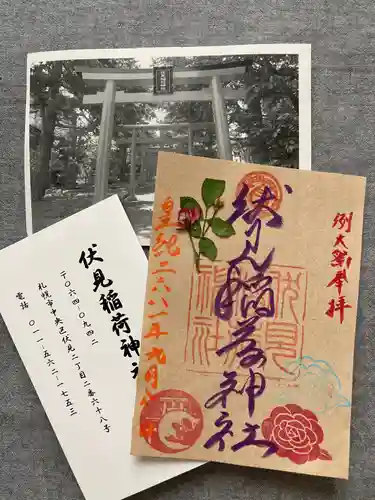 例大祭奉拝
伏見稲荷神社
皇紀二六八一年九月
伏見稲荷神社
〒〇六四-〇九四二
札幌市中央区伏見二丁目二番六十八号
電話 〇一一-五六二-一七五三